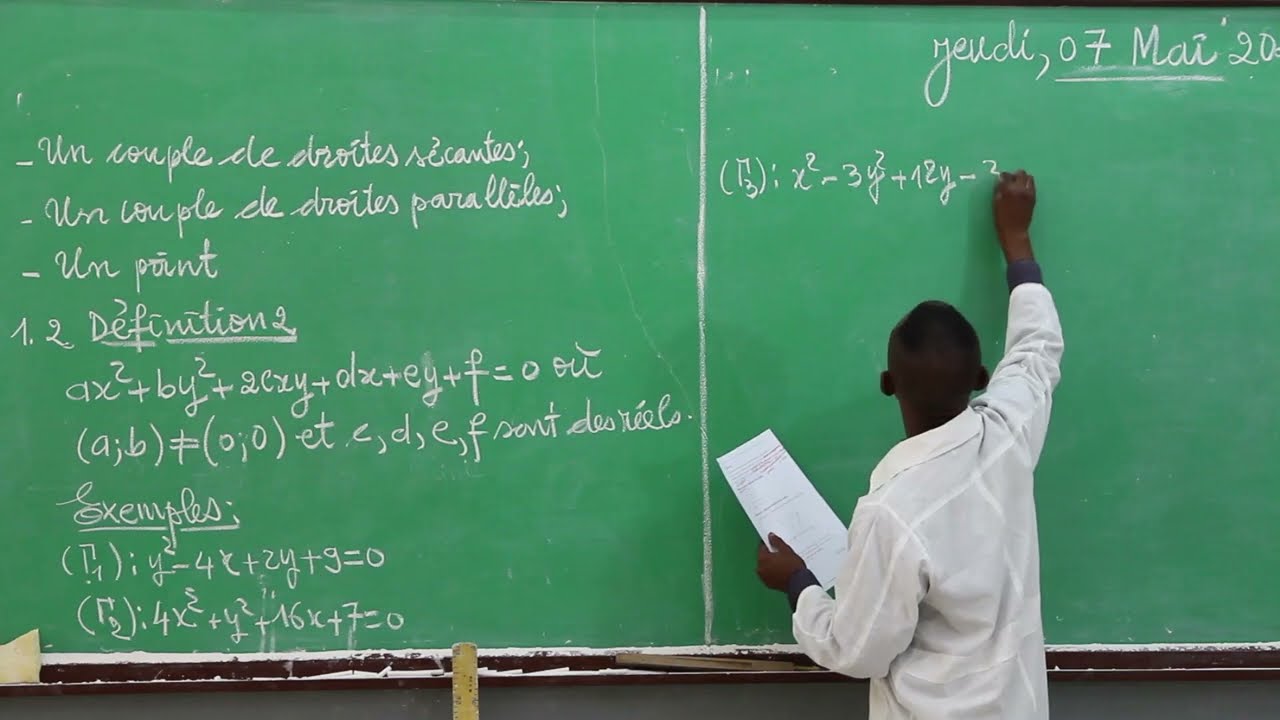 - Un couple de droites sécantes;
- Un couple de droites parallèles;
- Un point
1.2 Définition 2
ax²+by²+2cxy+dx+ey+f=0 où
(a;b)≠(0;0) et c,d,e,f sont des réels.
Exemples:
(Γ₁): y²-4x+2y+9=0
(Γ₂): 4x²+y²+16x+7=0
jeudi, 07 Mai 20
(Γ₃): x²-3y²+12y-3